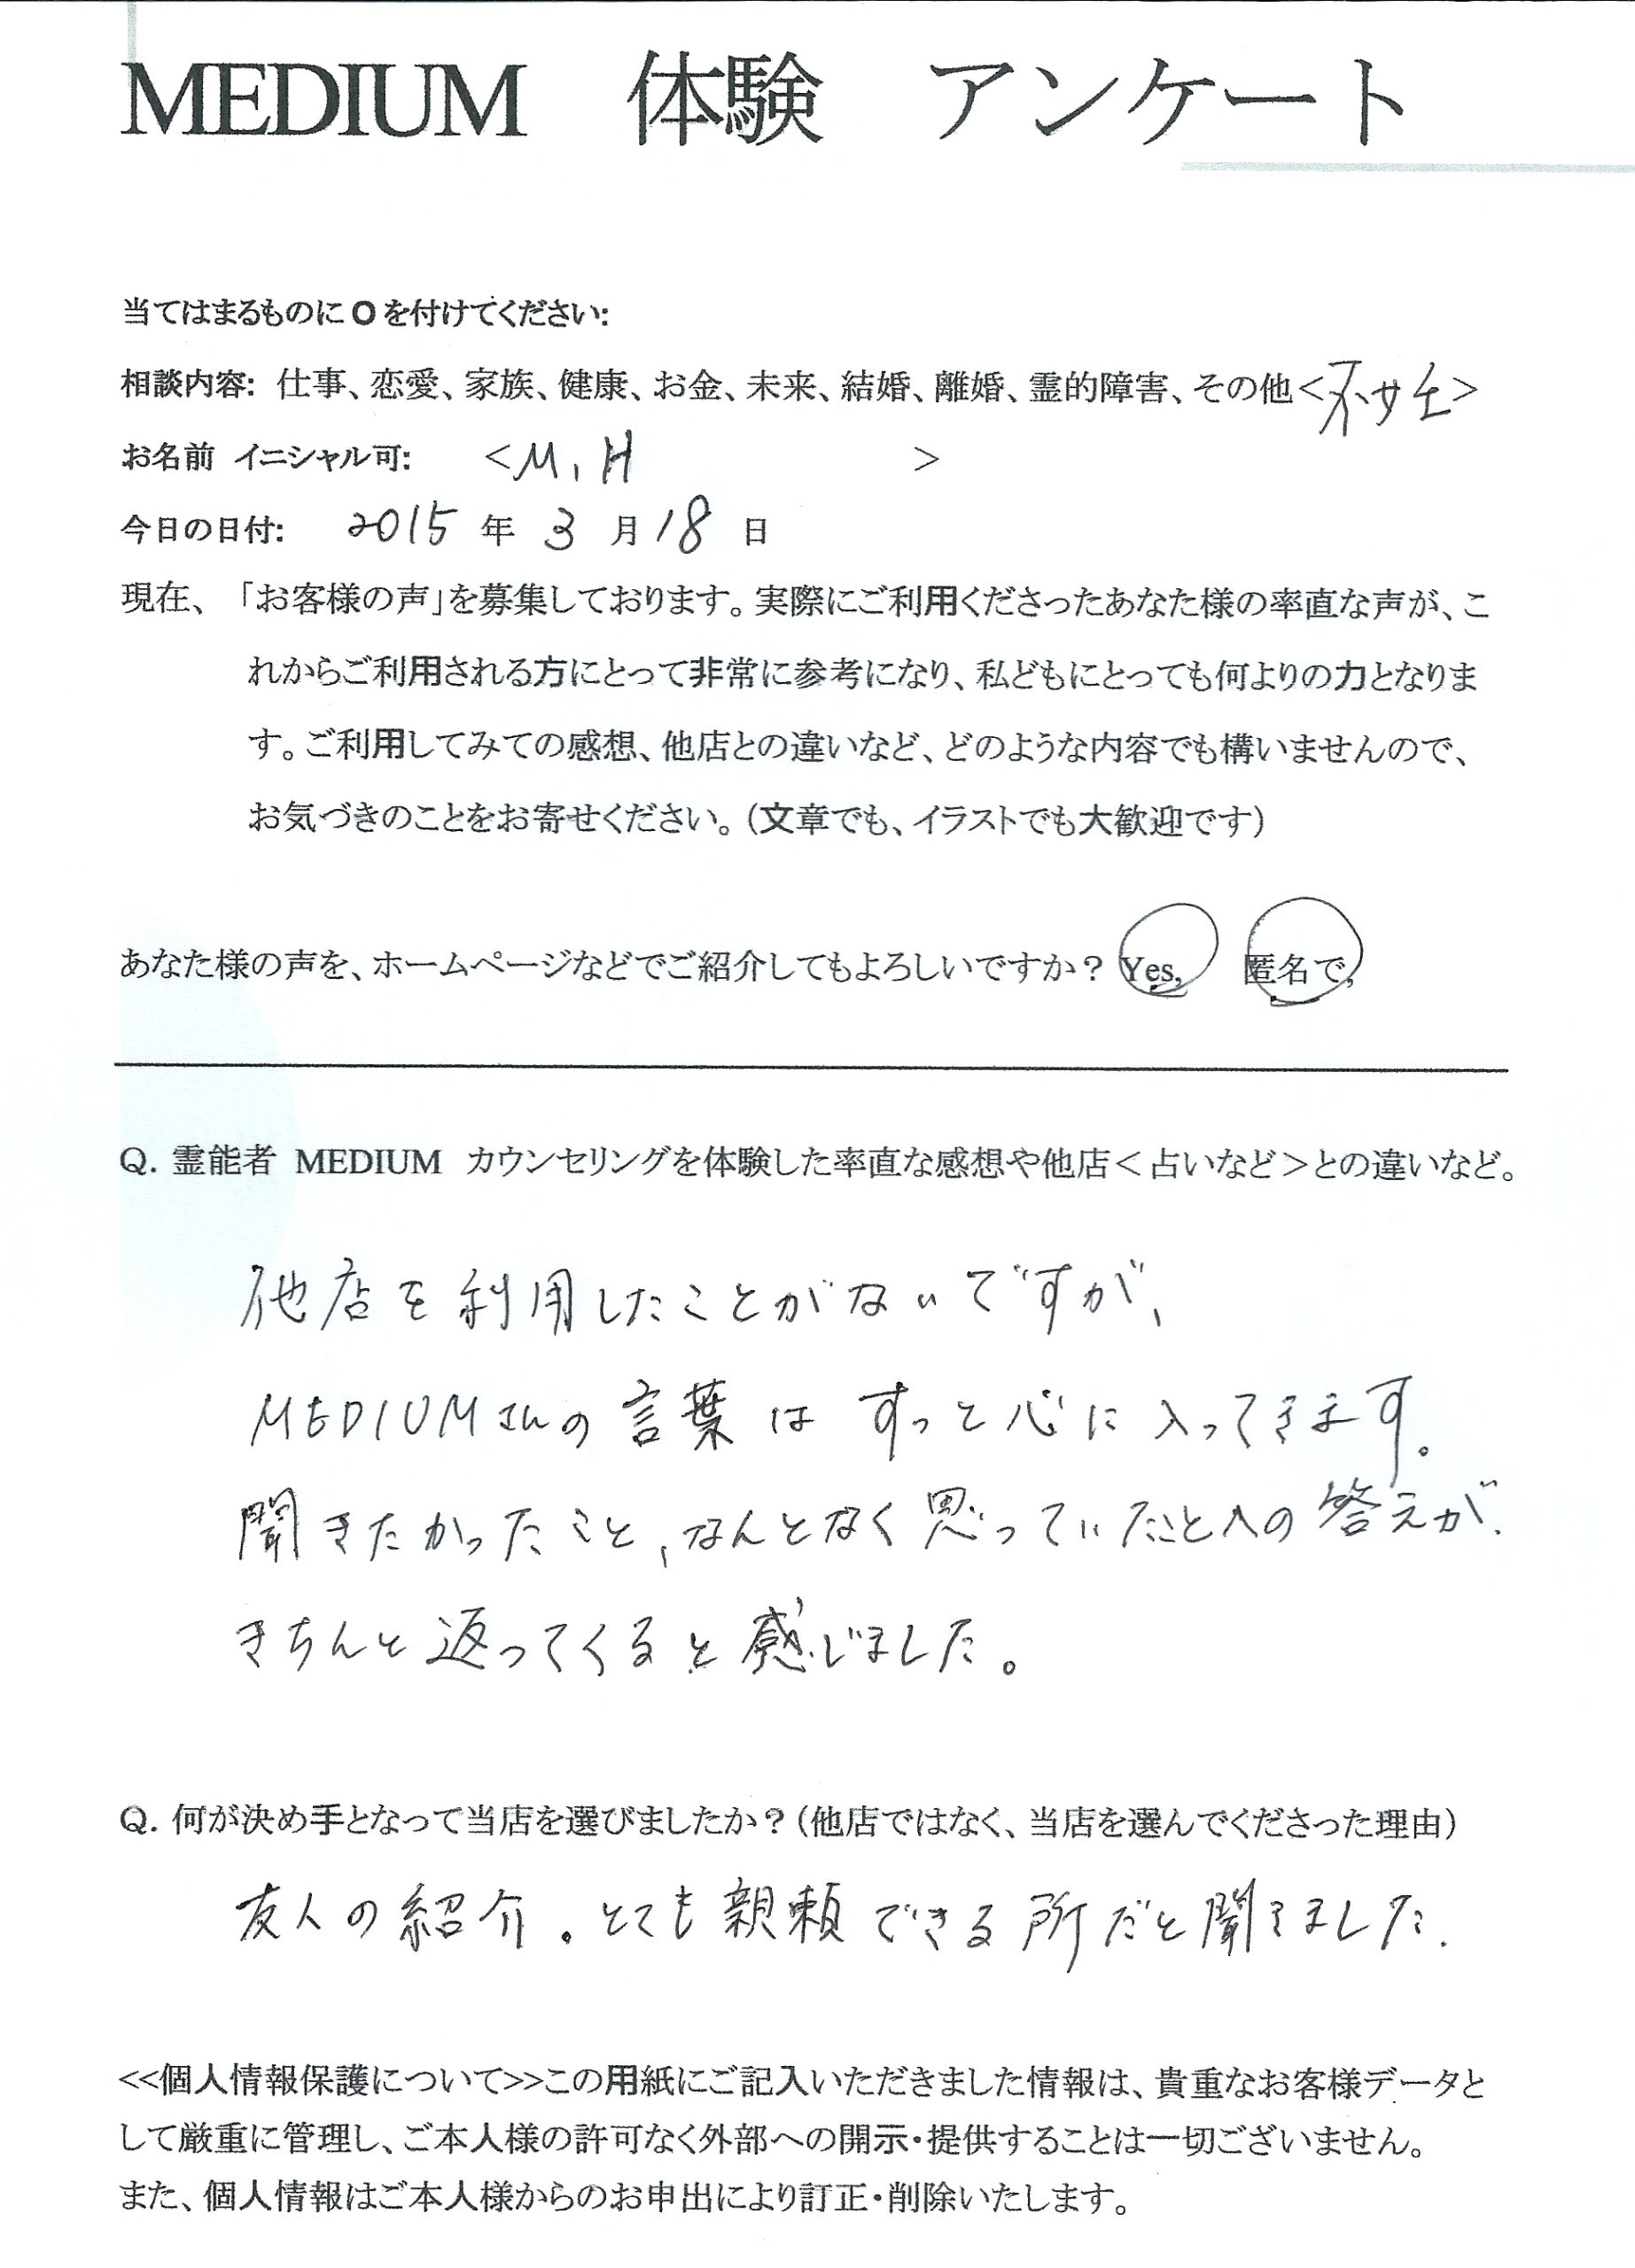 MEDIUM 体験 アンケート
当てはまるものに O を付けてください:
相談内容: 仕事、恋愛、家族、健康、お金、未来、結婚、離婚、霊的障害、その他<不妊>
お名前 イニシャル可: <M, H >
今日の日付: 2015 年 3 月 18 日
現在、「お客様の声」を募集しております。実際にご利用くださったあなた様の率直な声が、こ
れからご利用される方にとって非常に参考になり、私どもにとっても何よりの力となりま
す。ご利用してみての感想、他店との違いなど、どのような内容でも構いませんので、
お気づきのことをお寄せください。(文章でも、イラストでも大歓迎です)
あなた様の声を、ホームページなどでご紹介してもよろしいですか? Yes, 匿名で,
Q. 霊能者 MEDIUM カウンセリングを体験した率直な感想や他店<占いなど>との違いなど。
他店を利用したことがないですが、
MEDIUMさんの言葉は すっと心に入ってきます。
聞きたかったこと、なんとなく思っていたことへの答えが、
きちんと返ってくると感じました。
Q. 何が決め手となって当店を選びましたか?(他店ではなく、当店を選んでくださった理由)
友人の紹介。とても親頼できる所だと聞きました.
<<個人情報保護について>>この用紙にご記入いただきました情報は、貴重なお客様データと
して厳重に管理し、ご本人様の許可なく外部への開示・提供することは一切ございません。
また、個人情報はご本人様からのお申出により訂正・削除いたします。